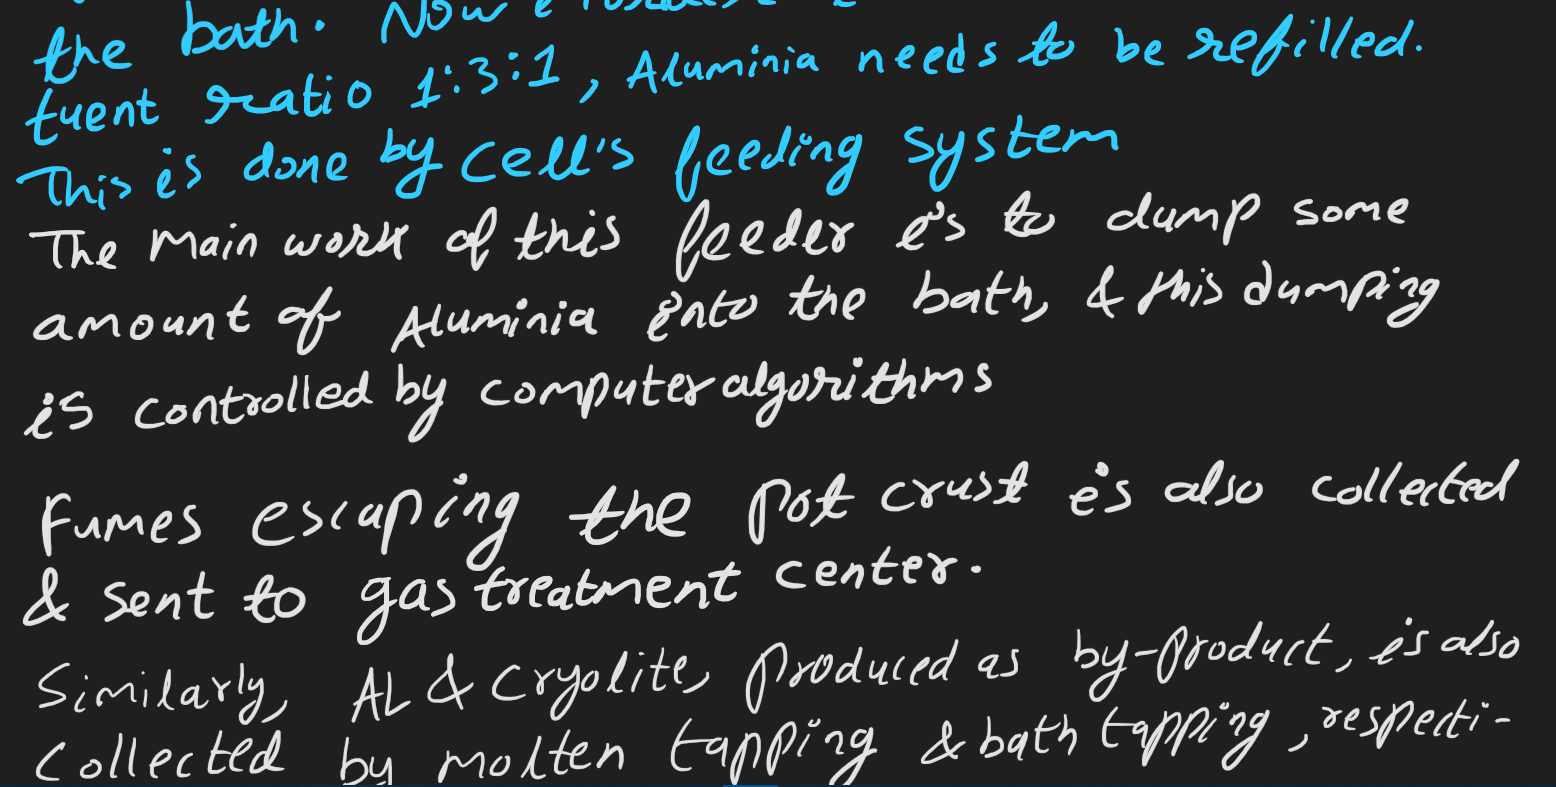 the bath. Now
tuent ratio 1:3:1, Aluminia needs to be refilled.
This is done by cell's feeding system
The main work of this feeder is to dump some
amount of Aluminia into the bath, & this dumping
is controlled by computer algorithms
Fumes escaping the pot crust is also collected
& sent to gas treatment center.
Similarly, AL & Cryolite, produced as by-product, is also
collected by molten tapping & bath tapping, respecti-